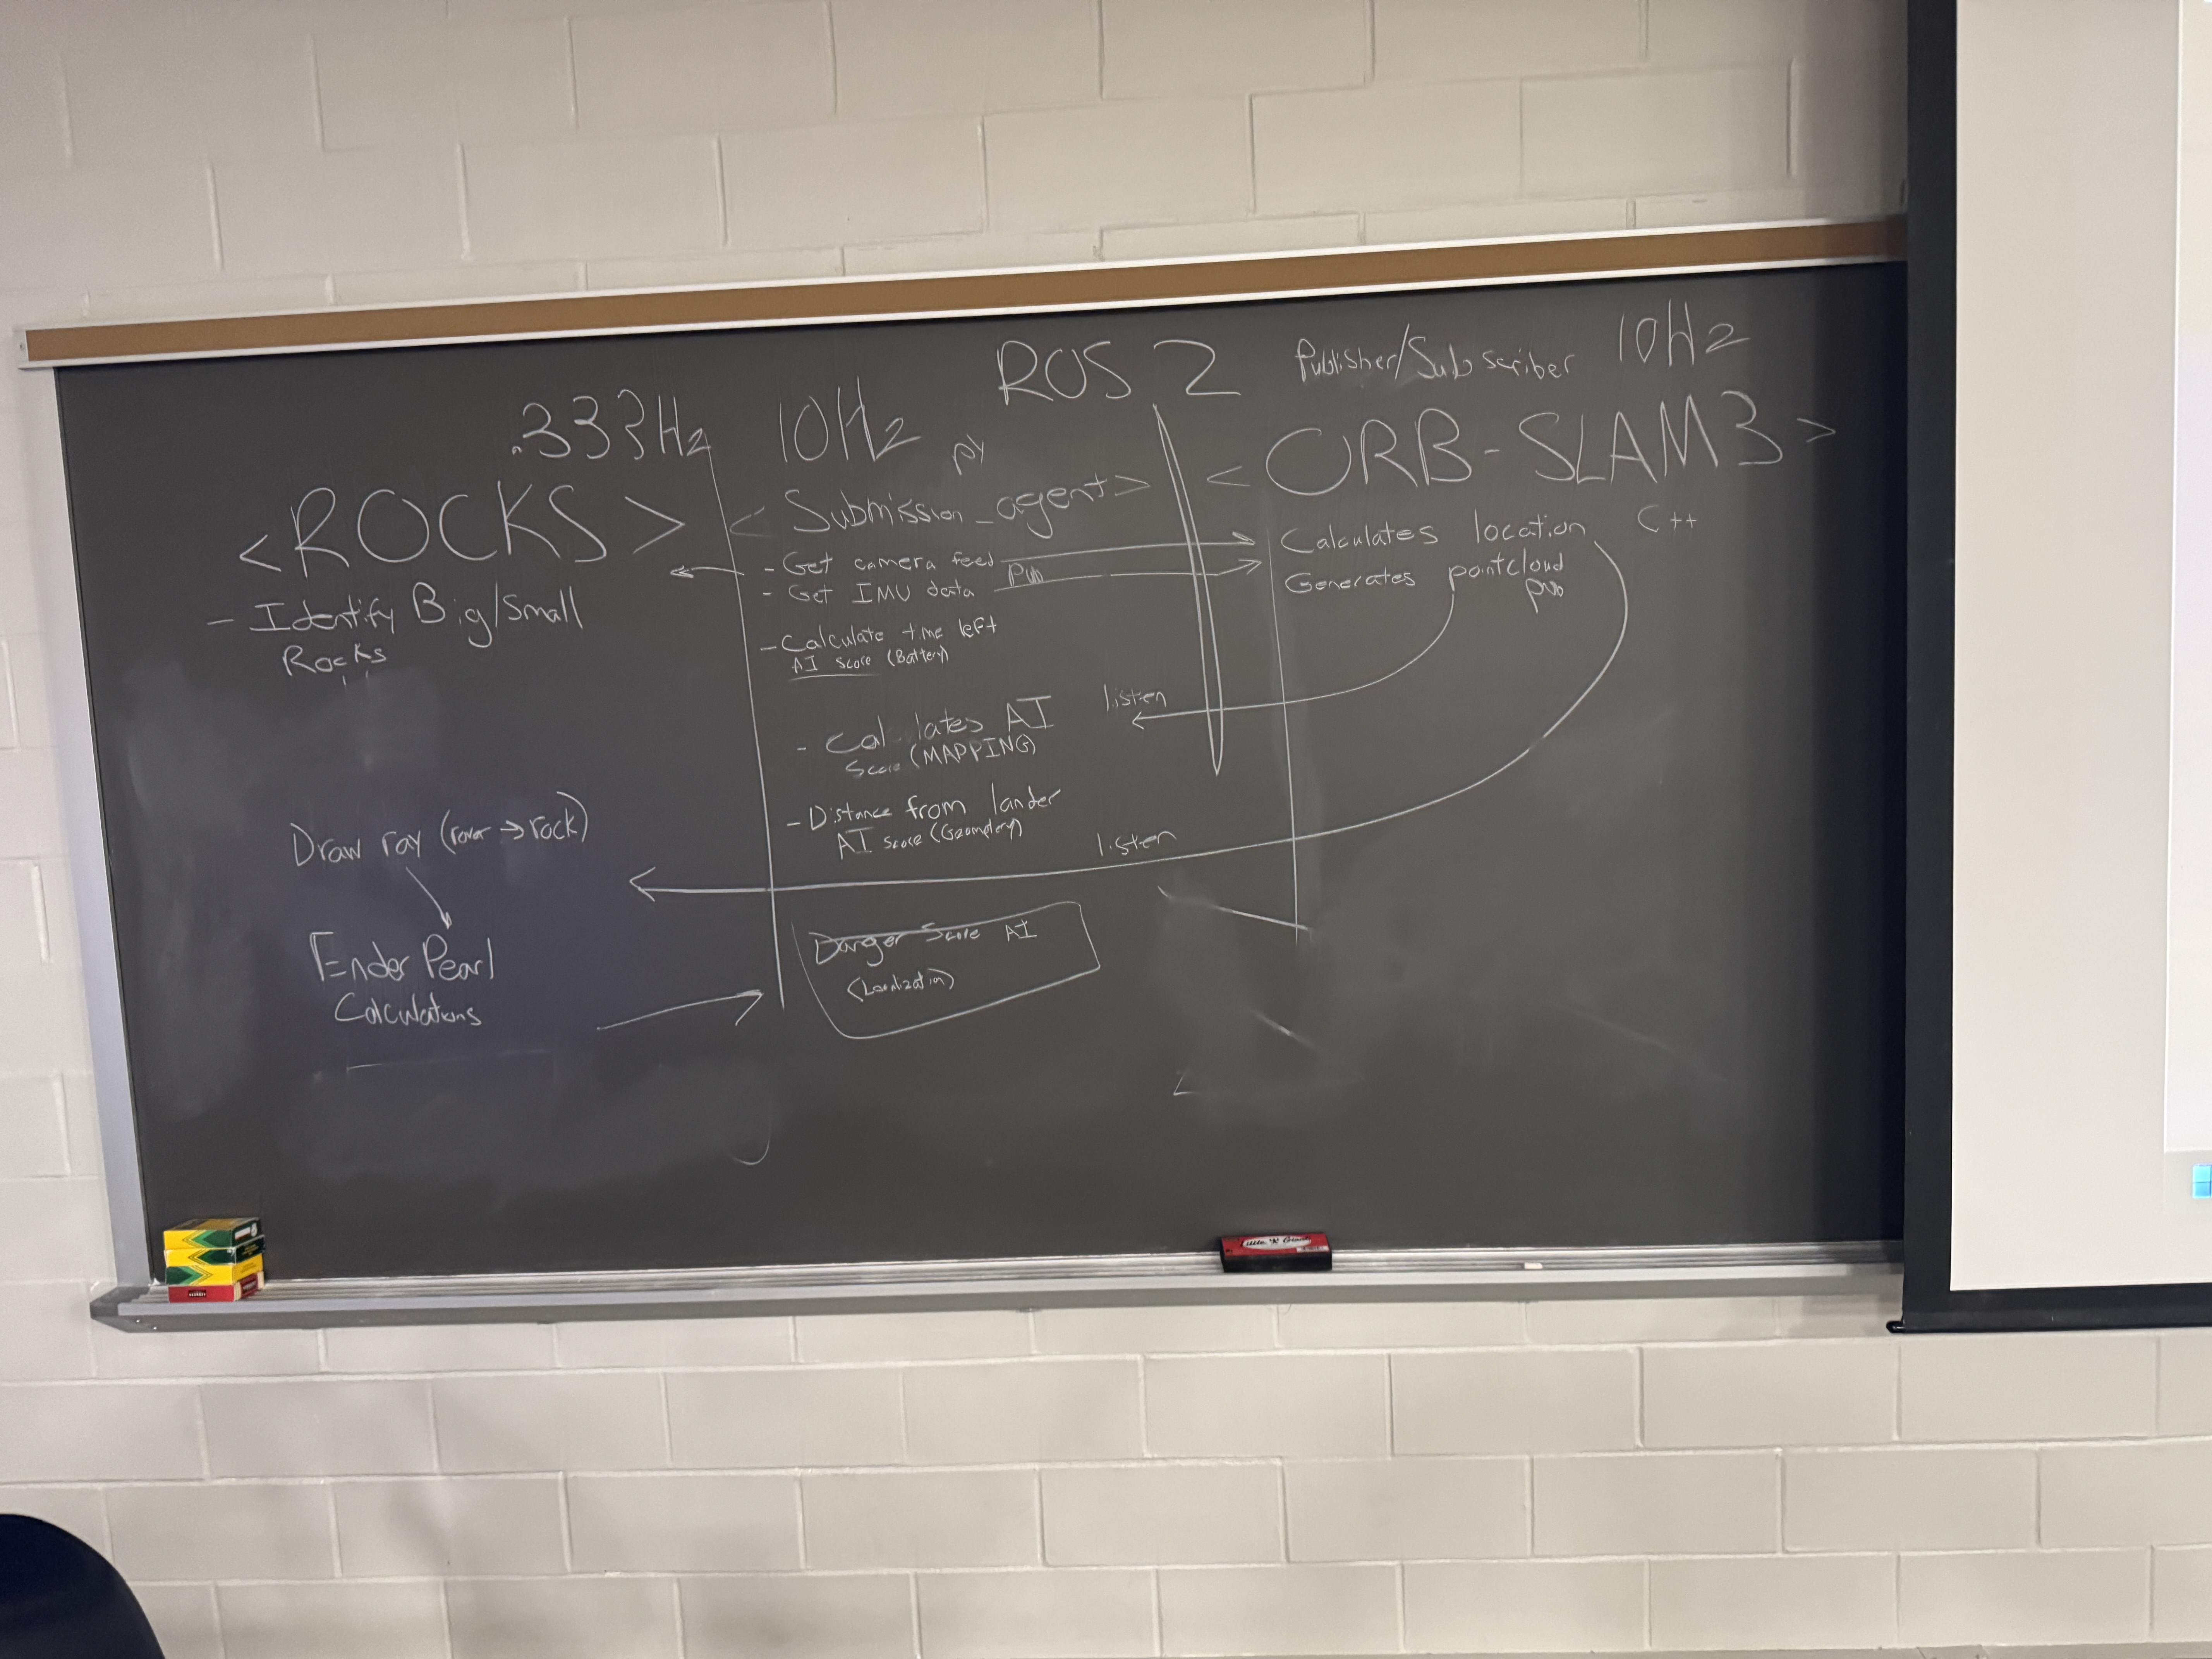 ROS 2
Publisher/Subscriber
10Hz
.333Hz
<ROCKS>
- Identify Big/Small
Rocks
Draw ray (rover → rock)
Ender Pearl
Calculations
10Hz
py
<Submission_agent>
- Get camera feed
- Get IMU data
Pub
- Calculate time left
AI score (Battery)
- Cal lates AI
Score (MAPPING)
- Distance from lander
AI score (Geometry)
Danger Score AI
(Localization)
listen
listen
<ORB-SLAM3>
C++
Calculates location
Generates pointcloud
pub